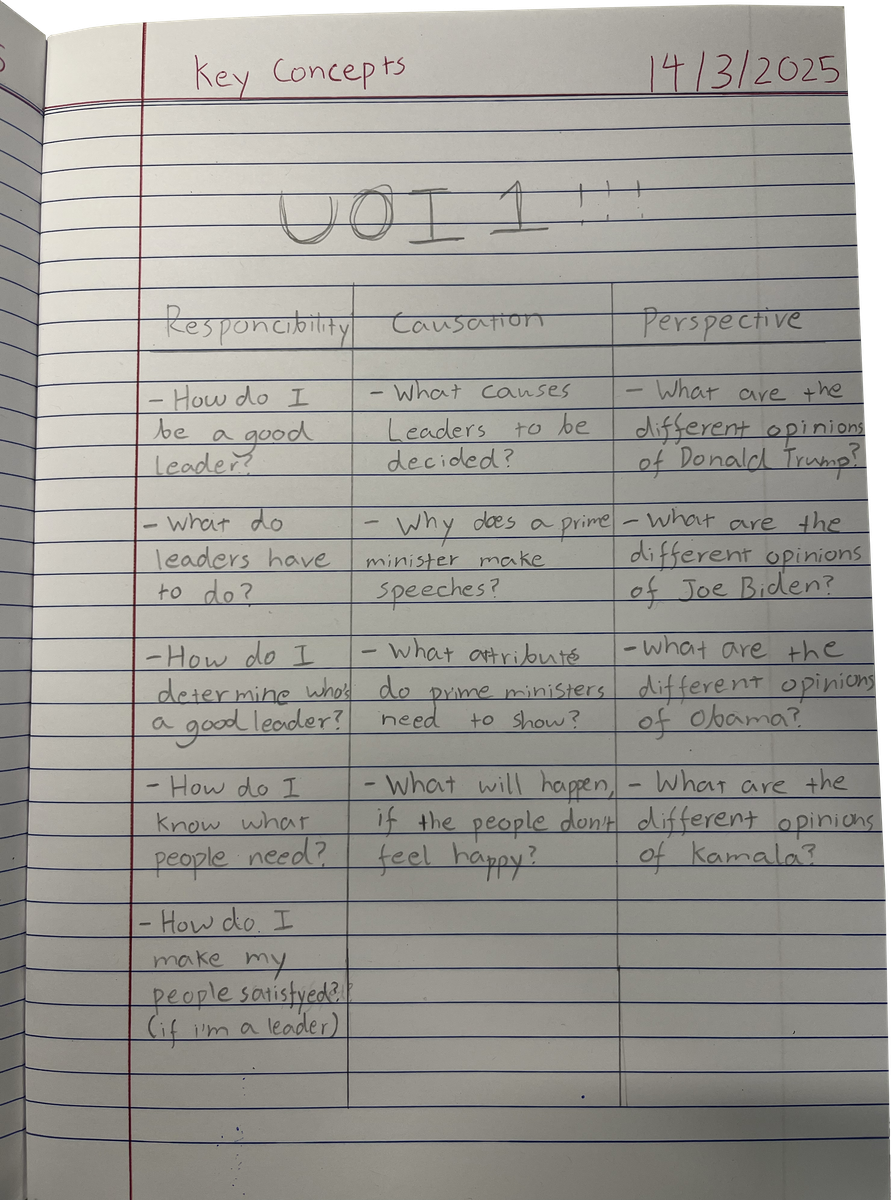 Key Concepts
14/3/2025
UOI 1 !!!
Responcibility
- How do I
be a good
leader?
- What do
leaders have
to do?
- How do I
determine who's
a good leader?
- How do I
know what
people need?
- How do I
make my
people satisfyed?
(if i'm a leader)
Causation
- What causes
Leaders to be
decided?
- Why does a prime
minister make
speeches?
- What attribute
do prime ministers
need to show?
- What will happen,
if the people don't
feel happy?
Perspective
- What are the
different opinions
of Donald Trump?
- What are the
different opinions
of Joe Biden?
- What are the
different opinions
of Obama?
- What are the
different opinions
of Kamala?